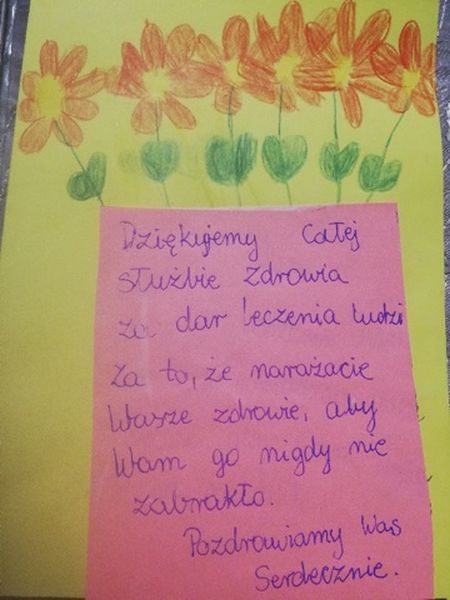 Dziękujemy Całej
służbie zdrowia
za dar leczenia ludzi
Za to, że narażacie
Wasze zdrowie, aby
Wam go nigdy nie
zabrakło.
Pozdrawiamy Was
Serdecznie.